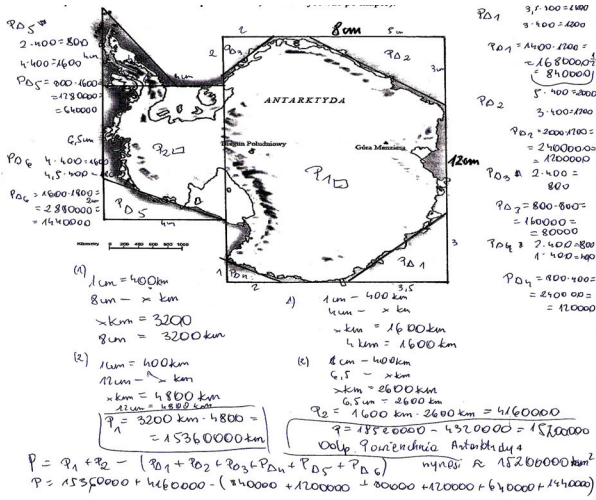 8cm
PΔ5
2·400=800
4·400=1600
PΔ5=800·1600=
=1280000=
=640000
6,5cm
PΔ6 4·400=1600
PΔ6=1600·1800=
=2880000=
=1440000
2
PΔ3
5cm
PΔ2
3cm
4cm
ANTARKTYDA
Biegun Południowy
Góra Menziesa
P2
P1
12cm
PΔ5
4cm
2cm
Kilometry
0 200 400 600 800 1000
1
PΔ4
2
PΔ1
3
3,5
PΔ1
3,5·400=1400
3·400=1200
PΔ1=1400·1200=
=1680000=
=840000
5·400=2000
PΔ2
3·400=1200
PΔ2=2000·1200=
=2400000=
=1200000
PΔ3 2·400=
800
PΔ3=800·800=
=160000=
=80000
PΔ4 2·400=800
1·400=400
PΔ4=800·400=
=240000=
=120000
(1)
1cm=400km
8cm – x km
xkm = 3200
8cm = 3200km
(2)
1cm=400km
12cm – x km
xkm = 4800km
12cm = 4800km
P1= 3200km·4800=
=15360000km
1)
1cm – 400km
4cm – x km
xkm = 1600km
4km = 1600km
(2)
1cm – 400km
6,5 – xkm
xkm=2600km
6,5cm=2600km
P2= 1600km·2600km=4160000
P=18520000–4320000=15200000
Odp. Powierzchnia Antarktydy
wynosi ≈ 15200000km²
P = P1+P2 – (PΔ1+PΔ2+PΔ3+PΔ4+PΔ5+PΔ6)
P= 15360000+4160000–(840000+1200000+80000+120000+640000+1440000)